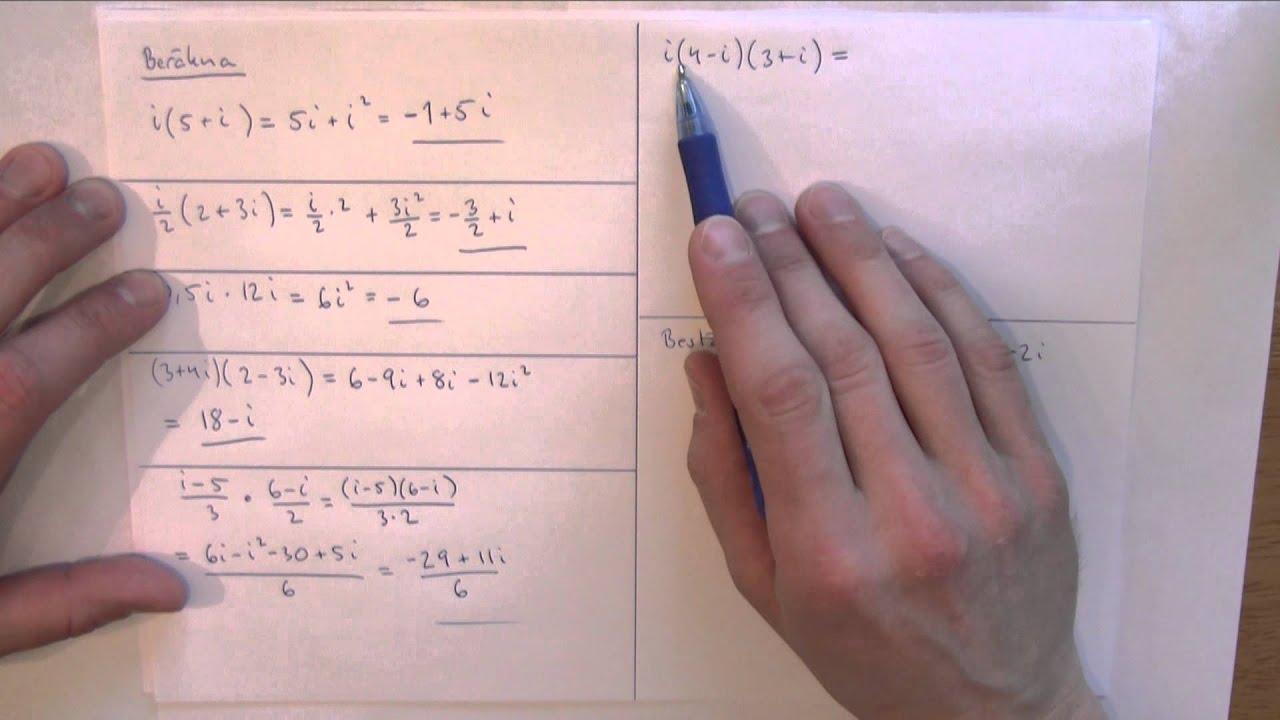 Beräkna
i(5+i) = 5i + i² = -1+5i
i/2 (2+3i) = i/2 · 2 + 3i²/2 = -3/2 + i
,5i · 12i = 6i² = -6
(3+4i)(2-3i) = 6-9i+8i-12i²
= 18-i
i-5/3 · 6-i/2 = (i-5)(6-i)/3·2
= 6i-i²-30+5i/6 = -29+11i/6
i(4-i)(3+i) =
-2i